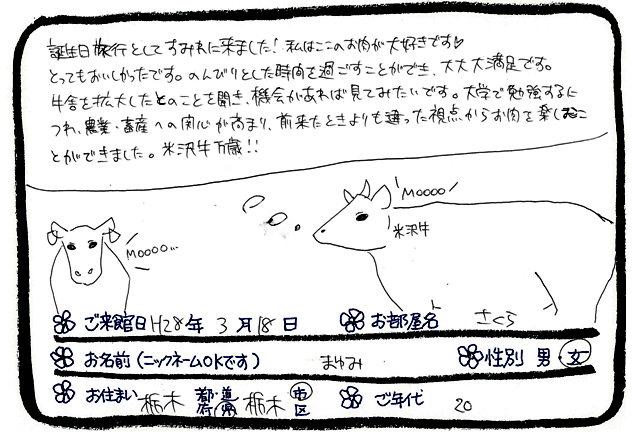 誕生日旅行としてすみれに来ました！私はここのお肉が大好きです♡
とってもおいしかったです。のんびりとした時間を過ごすことができ、大大大満足です。
牛舎を拡大したとのことを聞き、機会があれば見てみたいです。大学で勉強するに
つれ、農業・畜産への関心が高まり、前来たときよりも違った視点からお肉を楽しむこ
とができました。米沢牛万歳!!
MOOOO
米沢牛
MOOOO...
ご来館日 H28年 3月18日 お部屋名 さくら
お名前(ニックネームOKです) まゆみ 性別 男・女
お住まい 栃木 都・道・府・県 栃木 市・区 ご年代 20